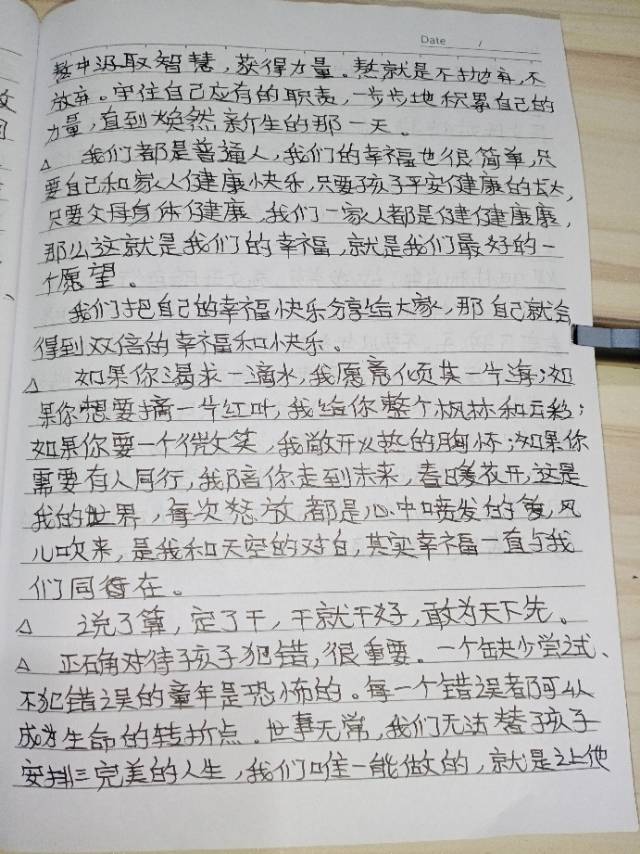 Date /
慧中汲取智慧，获得力量。熬就是不抛弃，不
放弃。守住自己应有的职责，一步步地积累自己的
力量，直到焕然新生的那一天。
△ 我们都是普通人，我们的幸福也很简单，只
要自己和家人健康快乐，只要孩子平安健康的长大，
只要父母身体健康，我们一家人都是健健康康，
那么这就是我们的幸福，就是我们最好的一
个愿望。
我们把自己的幸福快乐分享给大家，那自己就会
得到双倍的幸福和快乐。
△ 如果你渴求一滴水，我愿意倾其一片海；如
果你想要摘一片红叶，我给你整个枫林和云彩；
如果你要一个微笑，我敞开火热的胸怀；如果你
需要有人同行，我陪你走到未来，春暖花开，这是
我的世界，每次怒放都是心中喷发的爱，风
儿吹来，是我和天空的对白，其实幸福一直与我
们同在。
△ 说了算，定了干，干就干好，敢为天下先。
△ 正确对待孩子犯错，很重要。一个缺少尝试、
不犯错误的童年是恐怖的。每一个错误都可以
成为生命的转折点。世事无常，我们无法替孩子
安排完美的人生，我们唯一能做的，就是让他